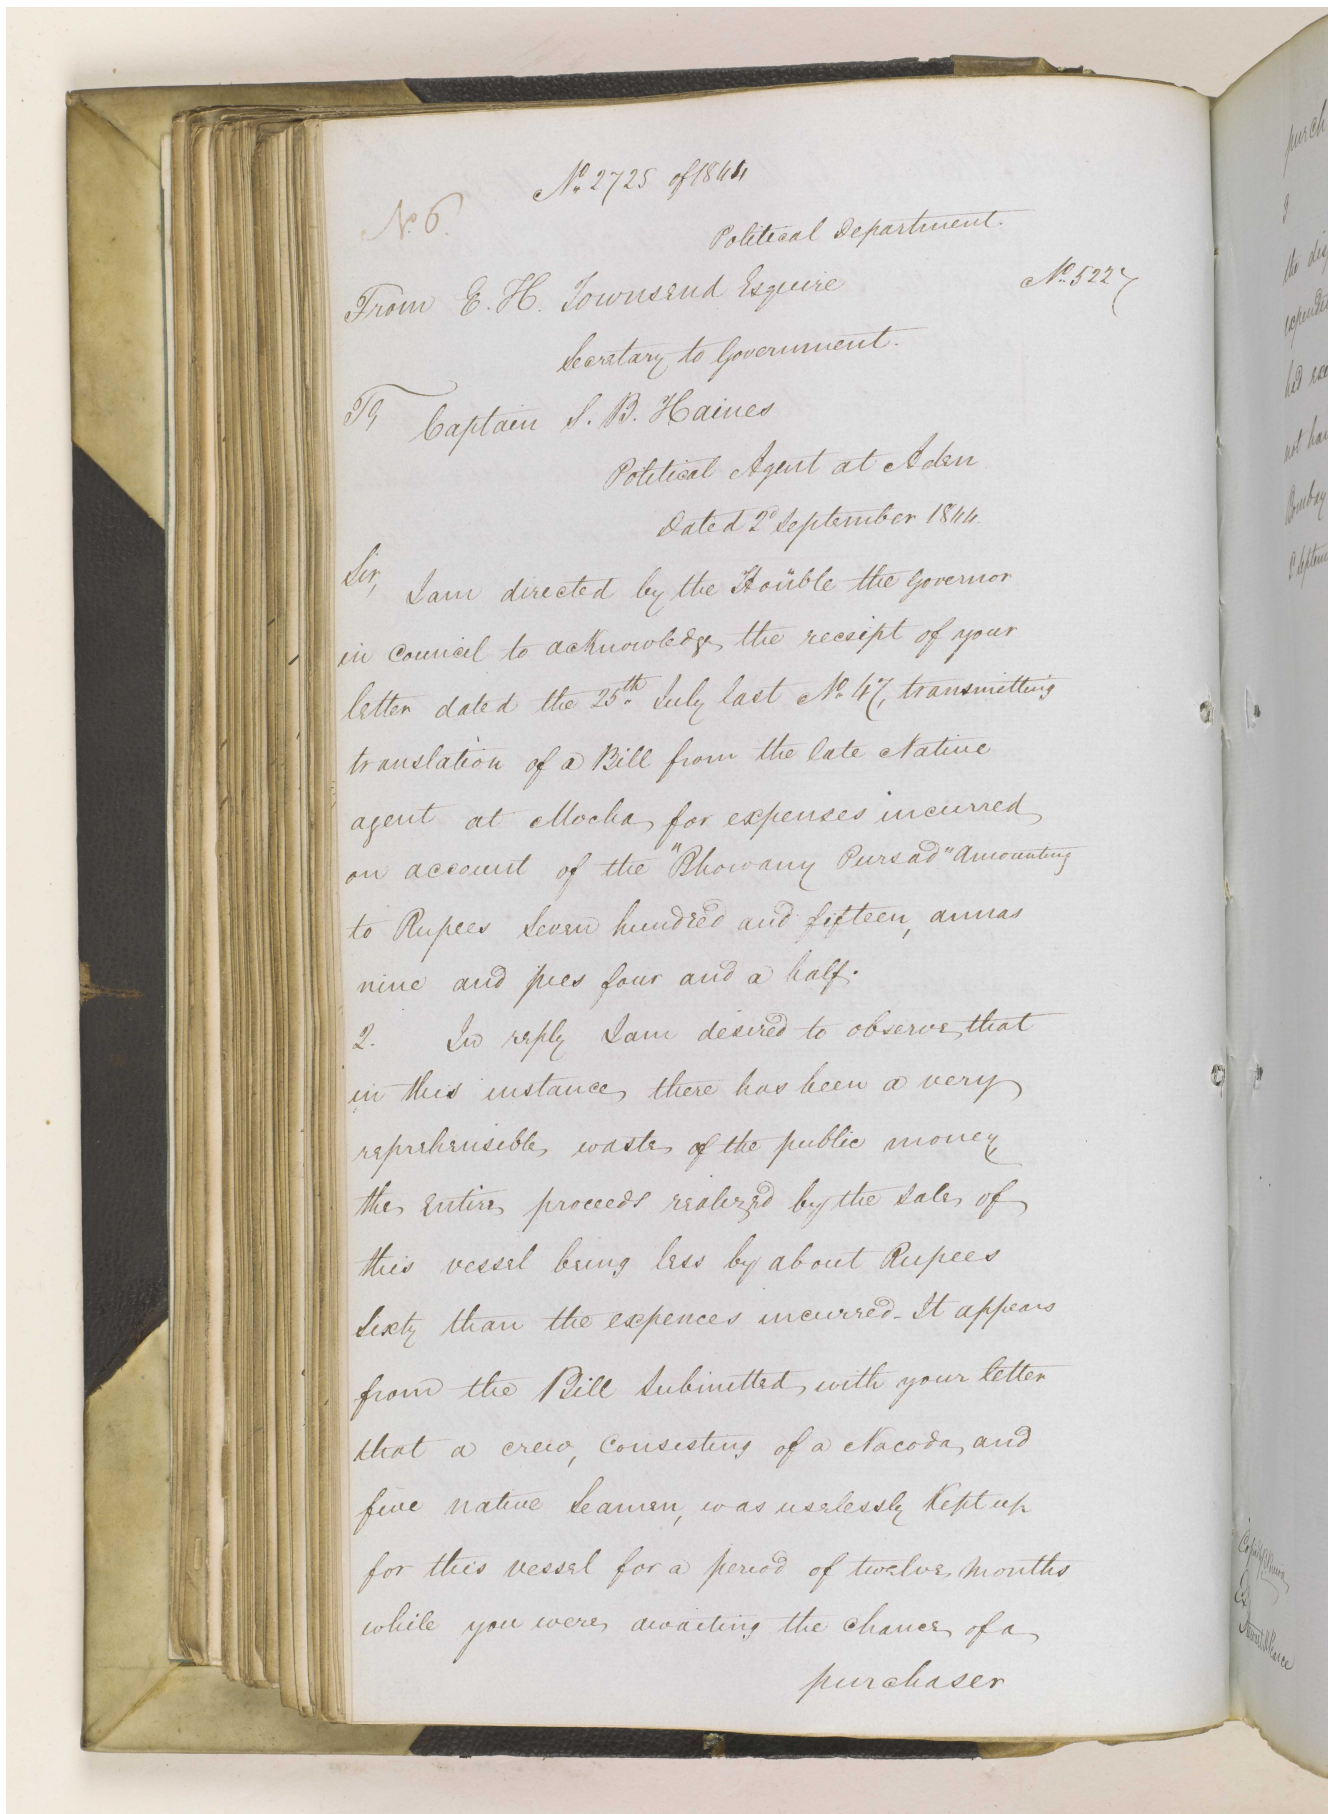 No. 2725 of 1844
No. 6.
Political Department.
No. 5227
From E. H. Townsend Esquire
Secretary to Government.
To
Captain S. B. Haines
Political Agent at Aden
Dated 2d September 1844.
Sir,
I am directed by the Honble the Governor
in Council to acknowledge the receipt of your
letter dated the 25th. July last No. 47, transmitting
translation of a Bill from the late Native
agent at Mocha, for expenses incurred
on account of the "Bhowany Pursad" amounting
to Rupees Seven hundred and fifteen, annas
nine and pies four and a half.
2. In reply I am desired to observe, that
in this instance, there has been a very
reprehensible waste of the public money,
the entire proceeds realized by the sale of
this vessel being less by about Rupees
Sixty than the expences incurred - It appears
from the Bill submitted with your letter
that a crew, consisting of a Nacoda, and
five native Seamen, was uselessly Kept up
for this vessel for a period of twelve months
while you were awaiting the chance of a
purchaser
purch
I
the dis
expendi
had
not hav
Bombay
Septem